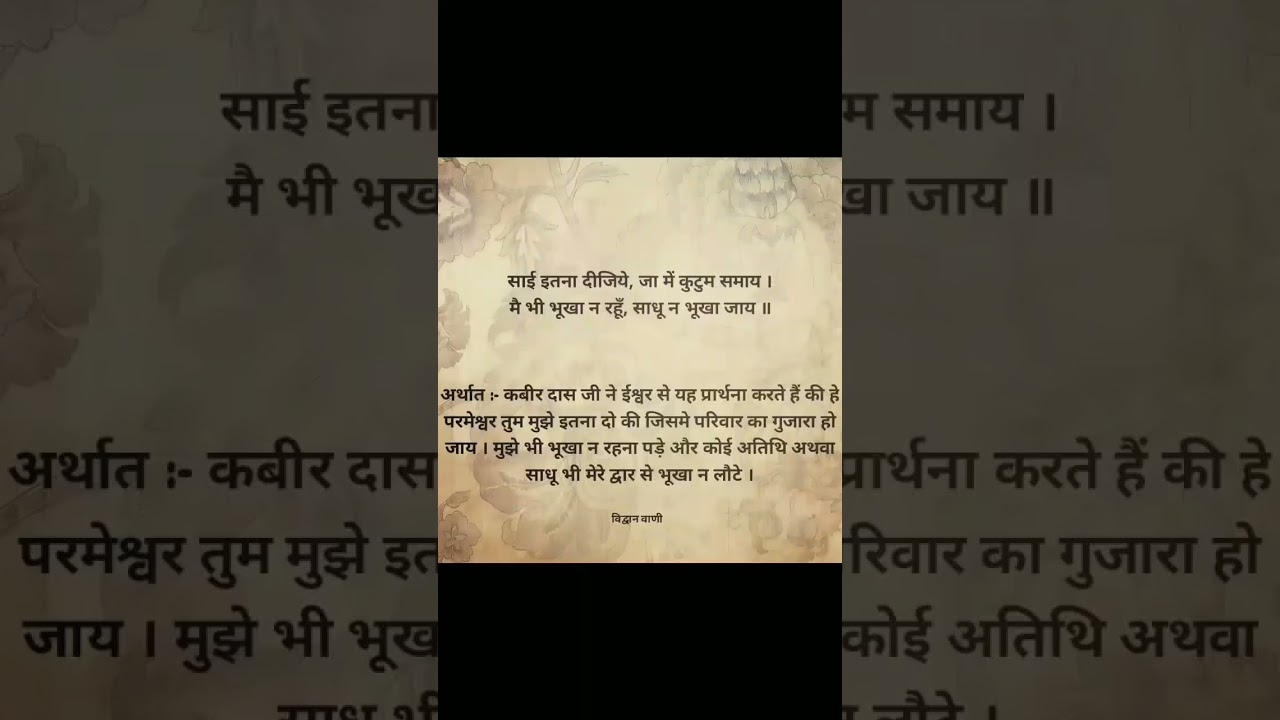 साई इतना दीजिये, जा में कुटुम समाय ।
मै भी भूखा न रहूँ, साधू न भूखा जाय ॥
अर्थात :- कबीर दास जी ने ईश्वर से यह प्रार्थना करते हैं की हे
परमेश्वर तुम मुझे इतना दो की जिसमे परिवार का गुजारा हो
जाय । मुझे भी भूखा न रहना पड़े और कोई अतिथि अथवा
साधू भी मेरे द्वार से भूखा न लौटे ।
विद्वान वाणी